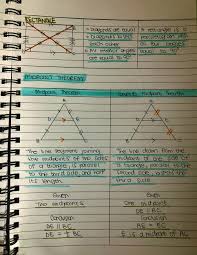 RECTANGLE
• Diagonals are equal
• Diagonals bisect each other
• All interior angles are equal to 90°
A rectangle is a
equal to 90°
MIDPOINT THEOREM
Midpoint Theorem
Converse Midpoint Theorem
A
D
E
B
C
A
D
E
B
C
The line segment joining
the midpoints of two sides
of a triangle, is parallel
to the third side, and half
its length.
The line drawn from the
midpoint of one side of
a triangle, parallel to the
second side, bisects the
third side.
Given
Two midpoints
Conclusion
DE || BC
DE = ½ BC
Given
One midpoint
DE || BC
Conclusion
AE = EC
E is a midpoint of AC